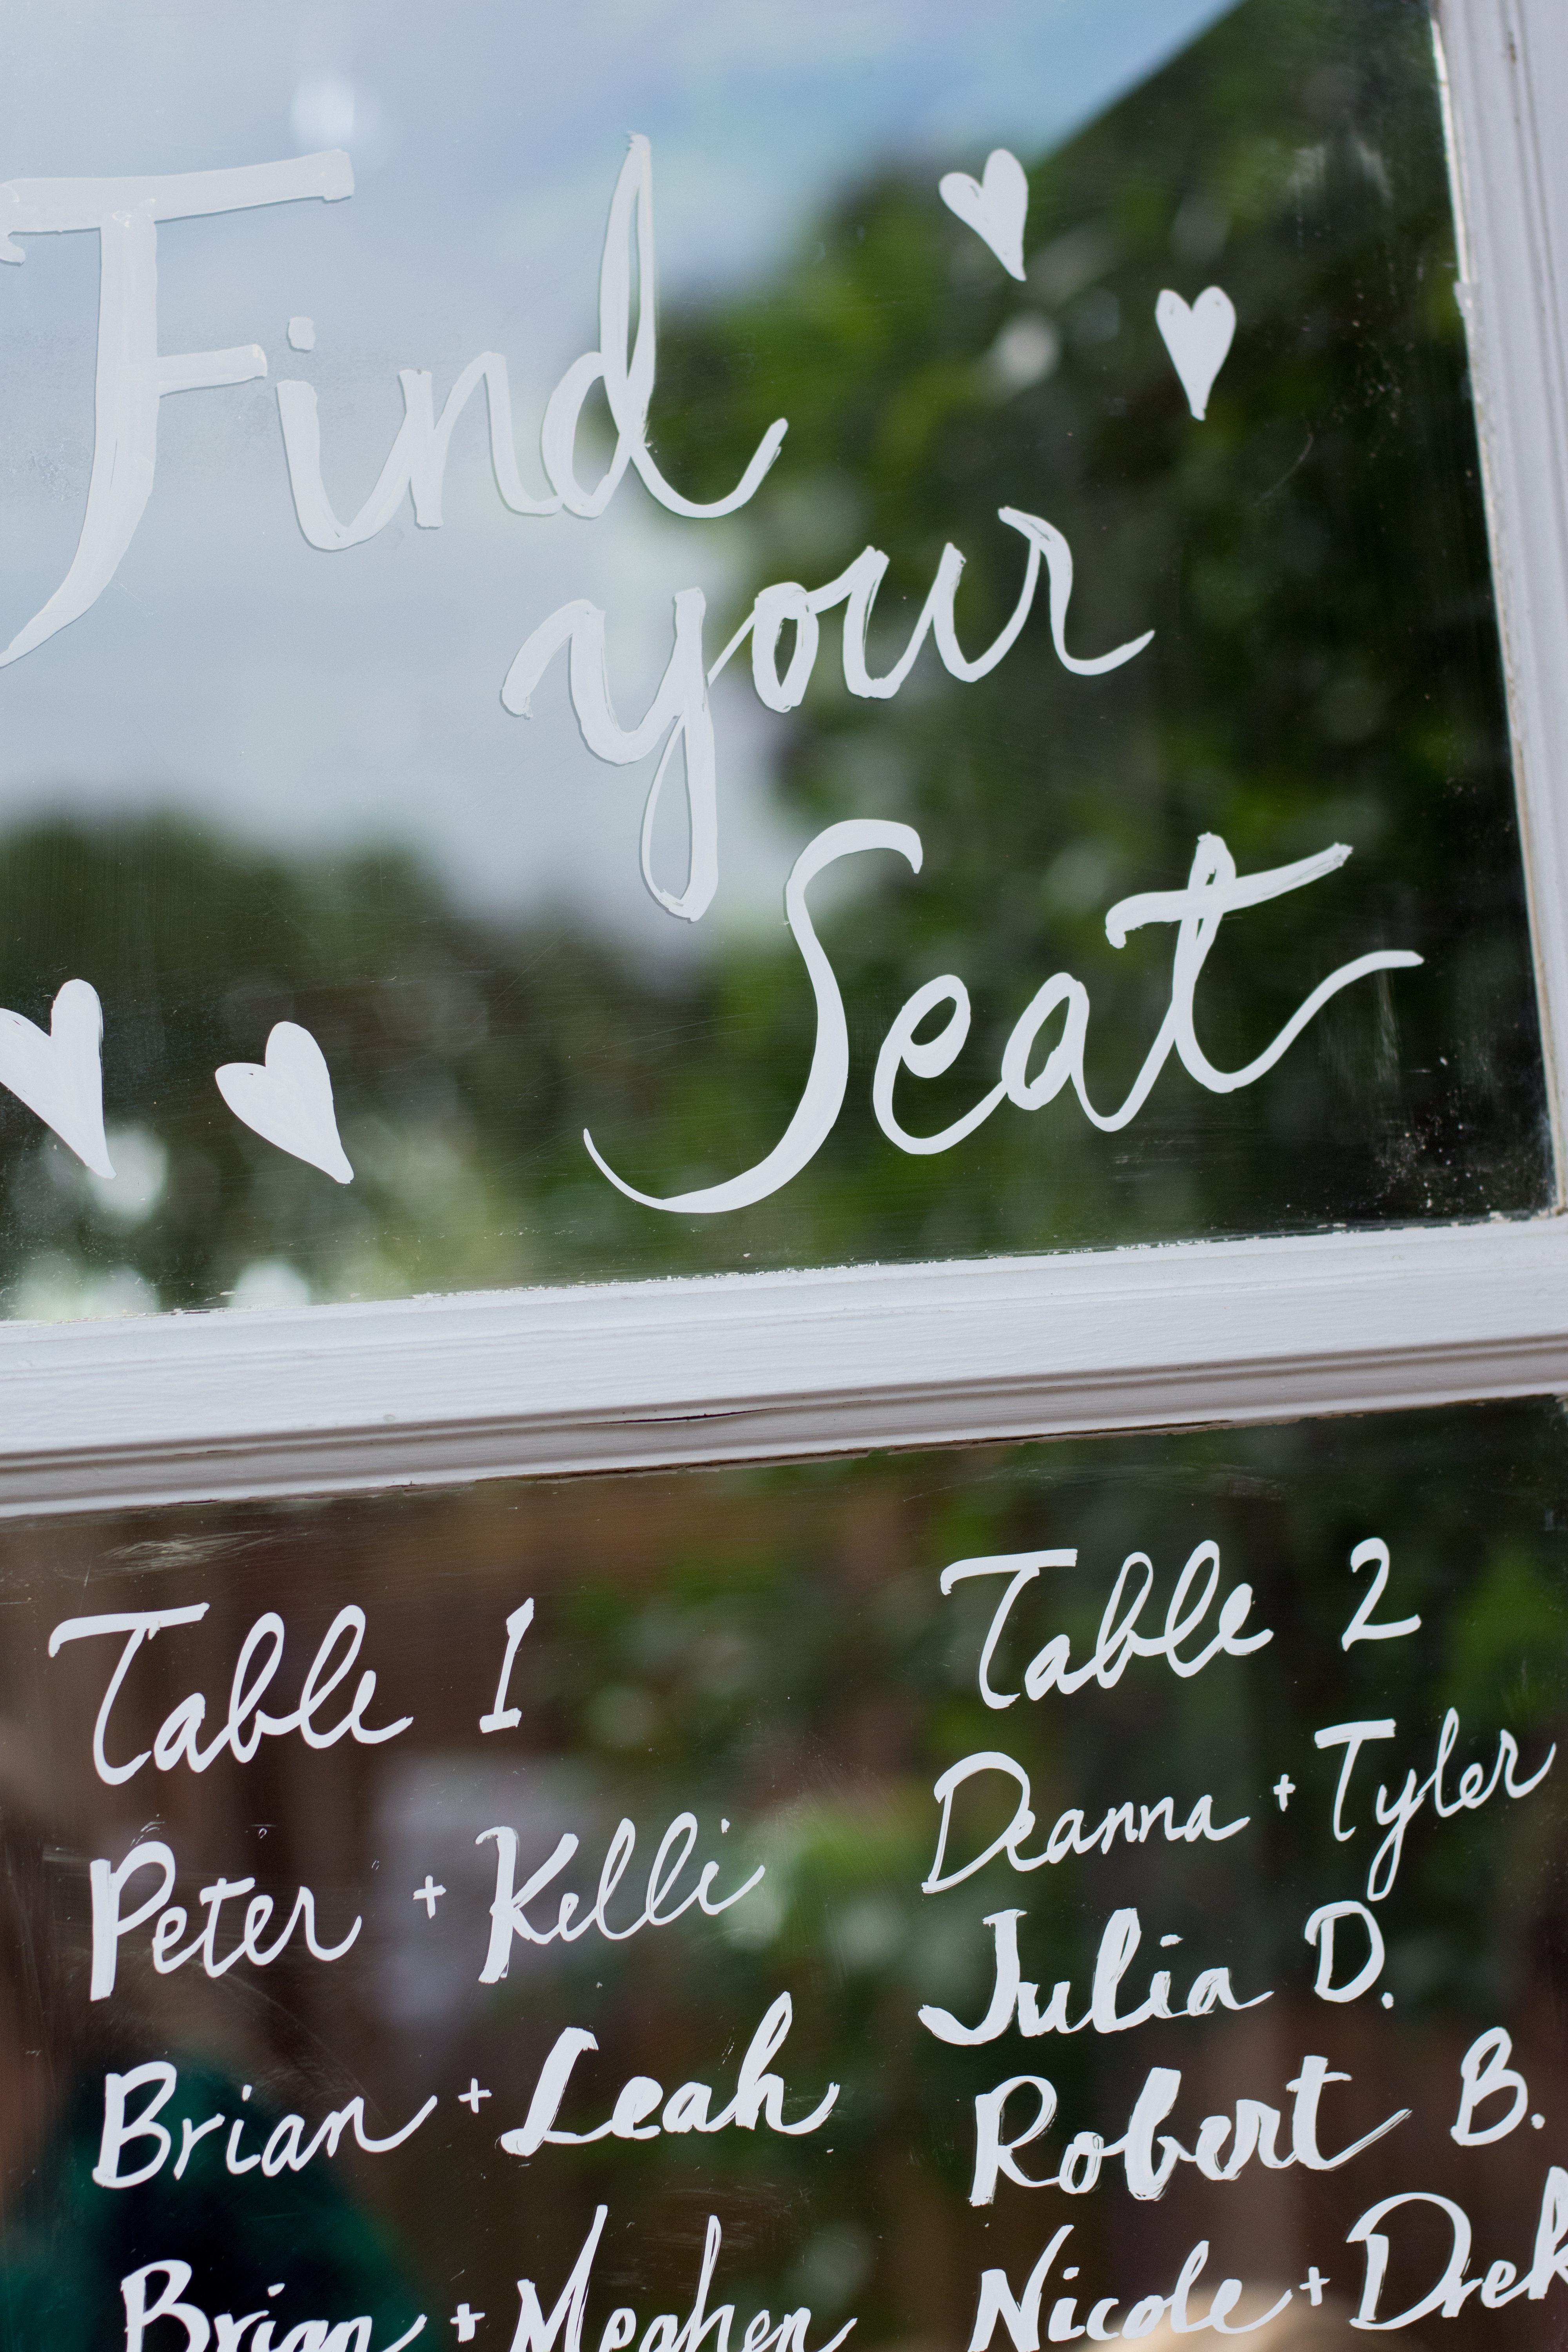 Find
your
Seat
Table 1
Peter + Kelli
Brian + Leah
Brian + Meghen
Table 2
Deanna + Tyler
Julia D.
Robert B.
Nicole +